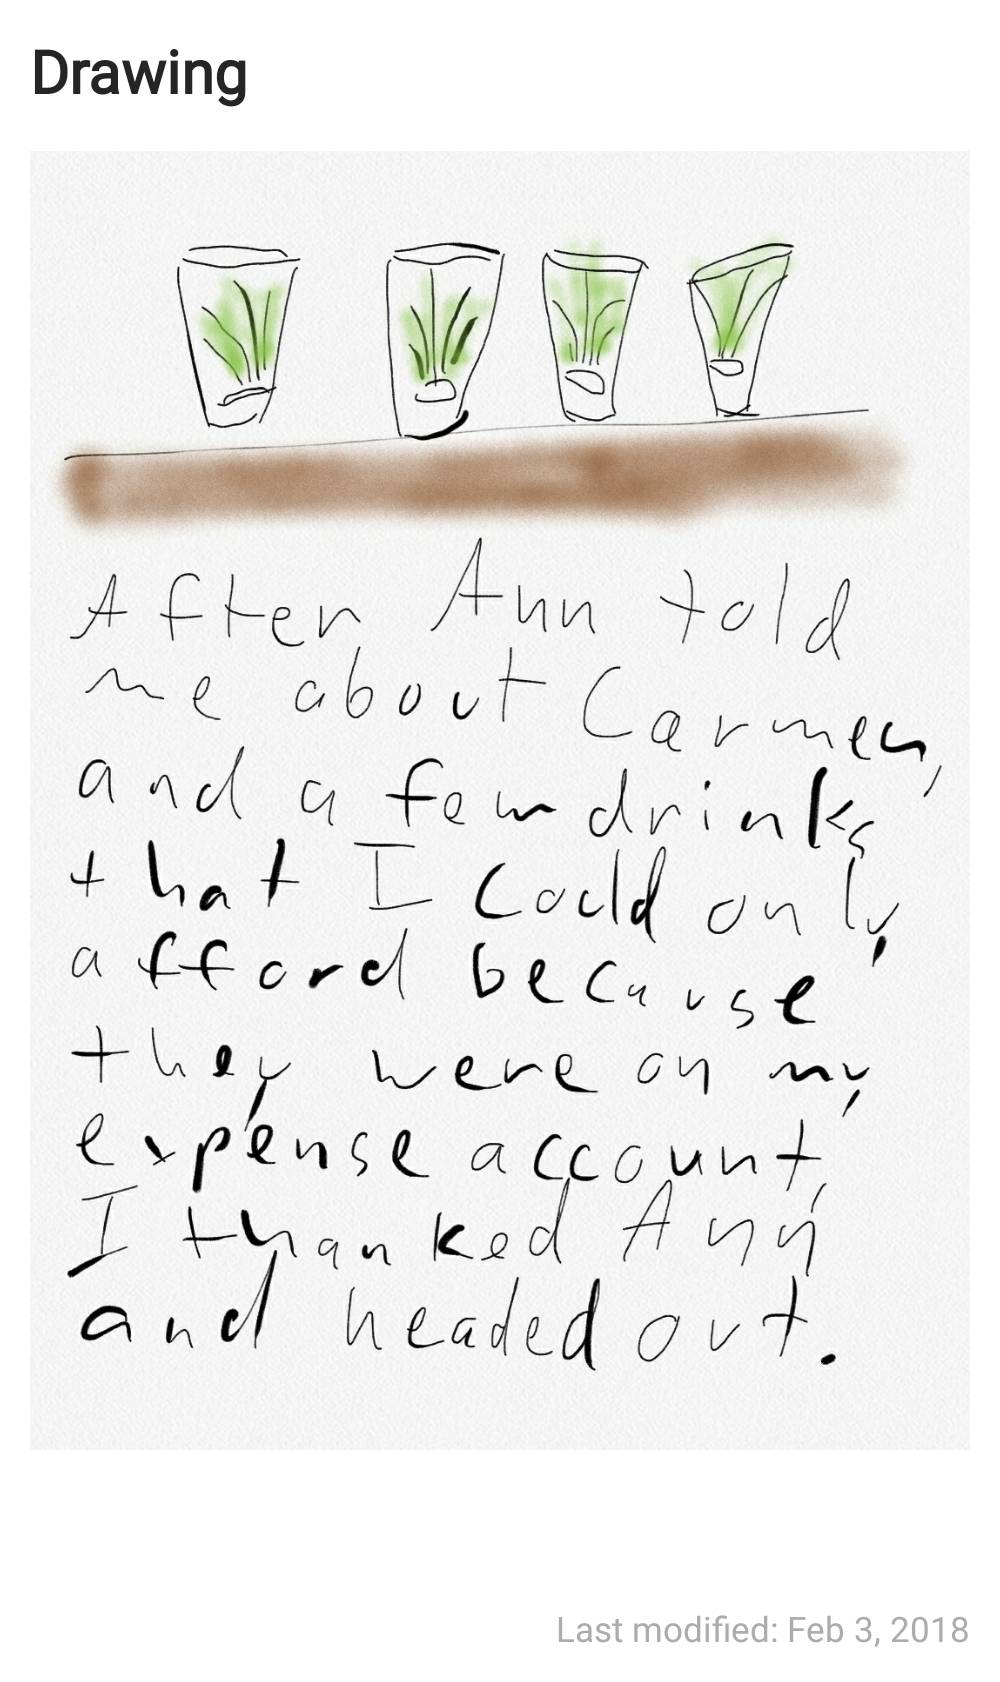 Drawing
After Ann told
me about Carmen,
and a few drinks
that I could only
afford because
they were on my
expense account,
I thanked Ann
and headed out.
Last modified: Feb 3, 2018